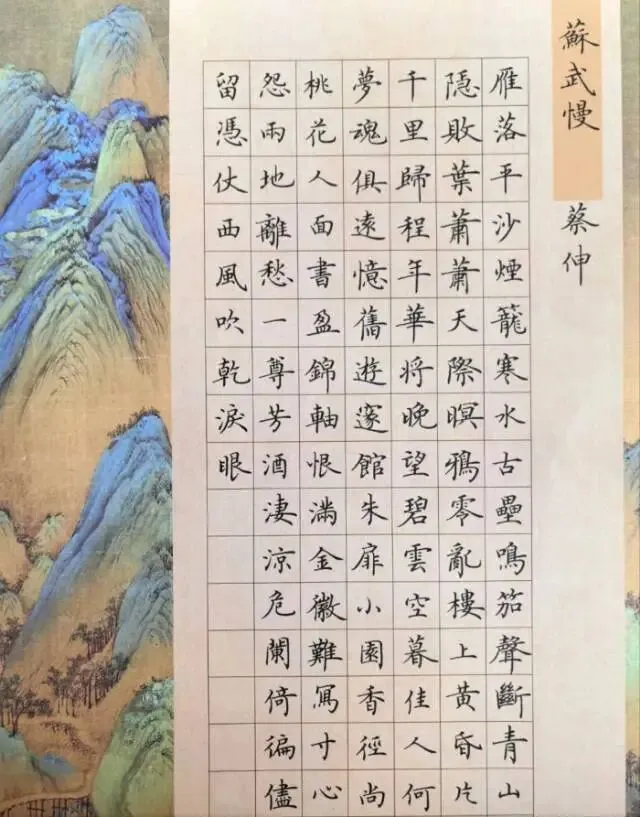 蘇武慢 蔡伸
雁落平沙煙籠寒水古壘鳴笳聲斷青山
隱敗葉蕭蕭天際暝鴉零亂樓上黄昏片
千里歸程年華将晚望碧雲空暮佳人何
夢魂俱遠憶舊遊邃館朱扉小園香徑尚
桃花人面書盈錦軸恨滿金徽難冩寸心
怨兩地離愁一尊芳酒淒涼危闌倚徧儘
留憑仗西風吹乾淚眼